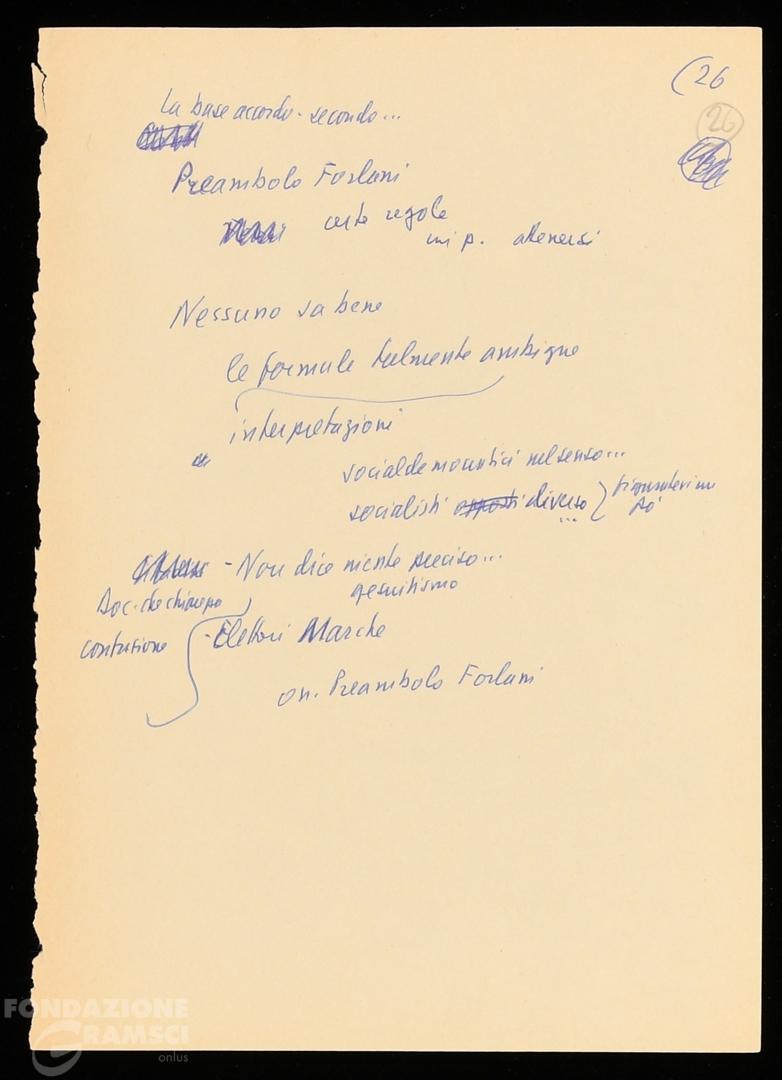 (26
26
La base accordo - secondo...
Preambolo Forlani
certe regole
mi p. attenersi
Nessuno sa bene
le formule talmente ambigue
interpretazioni
socialdemocratici nel senso...
socialisti opposti diverso
...
- Non dice niente preciso...
gesuitismo
Soc. che
confusione
- Elettori Marche
on. Preambolo Forlani
FONDAZIONE
GRAMSCI
onlus